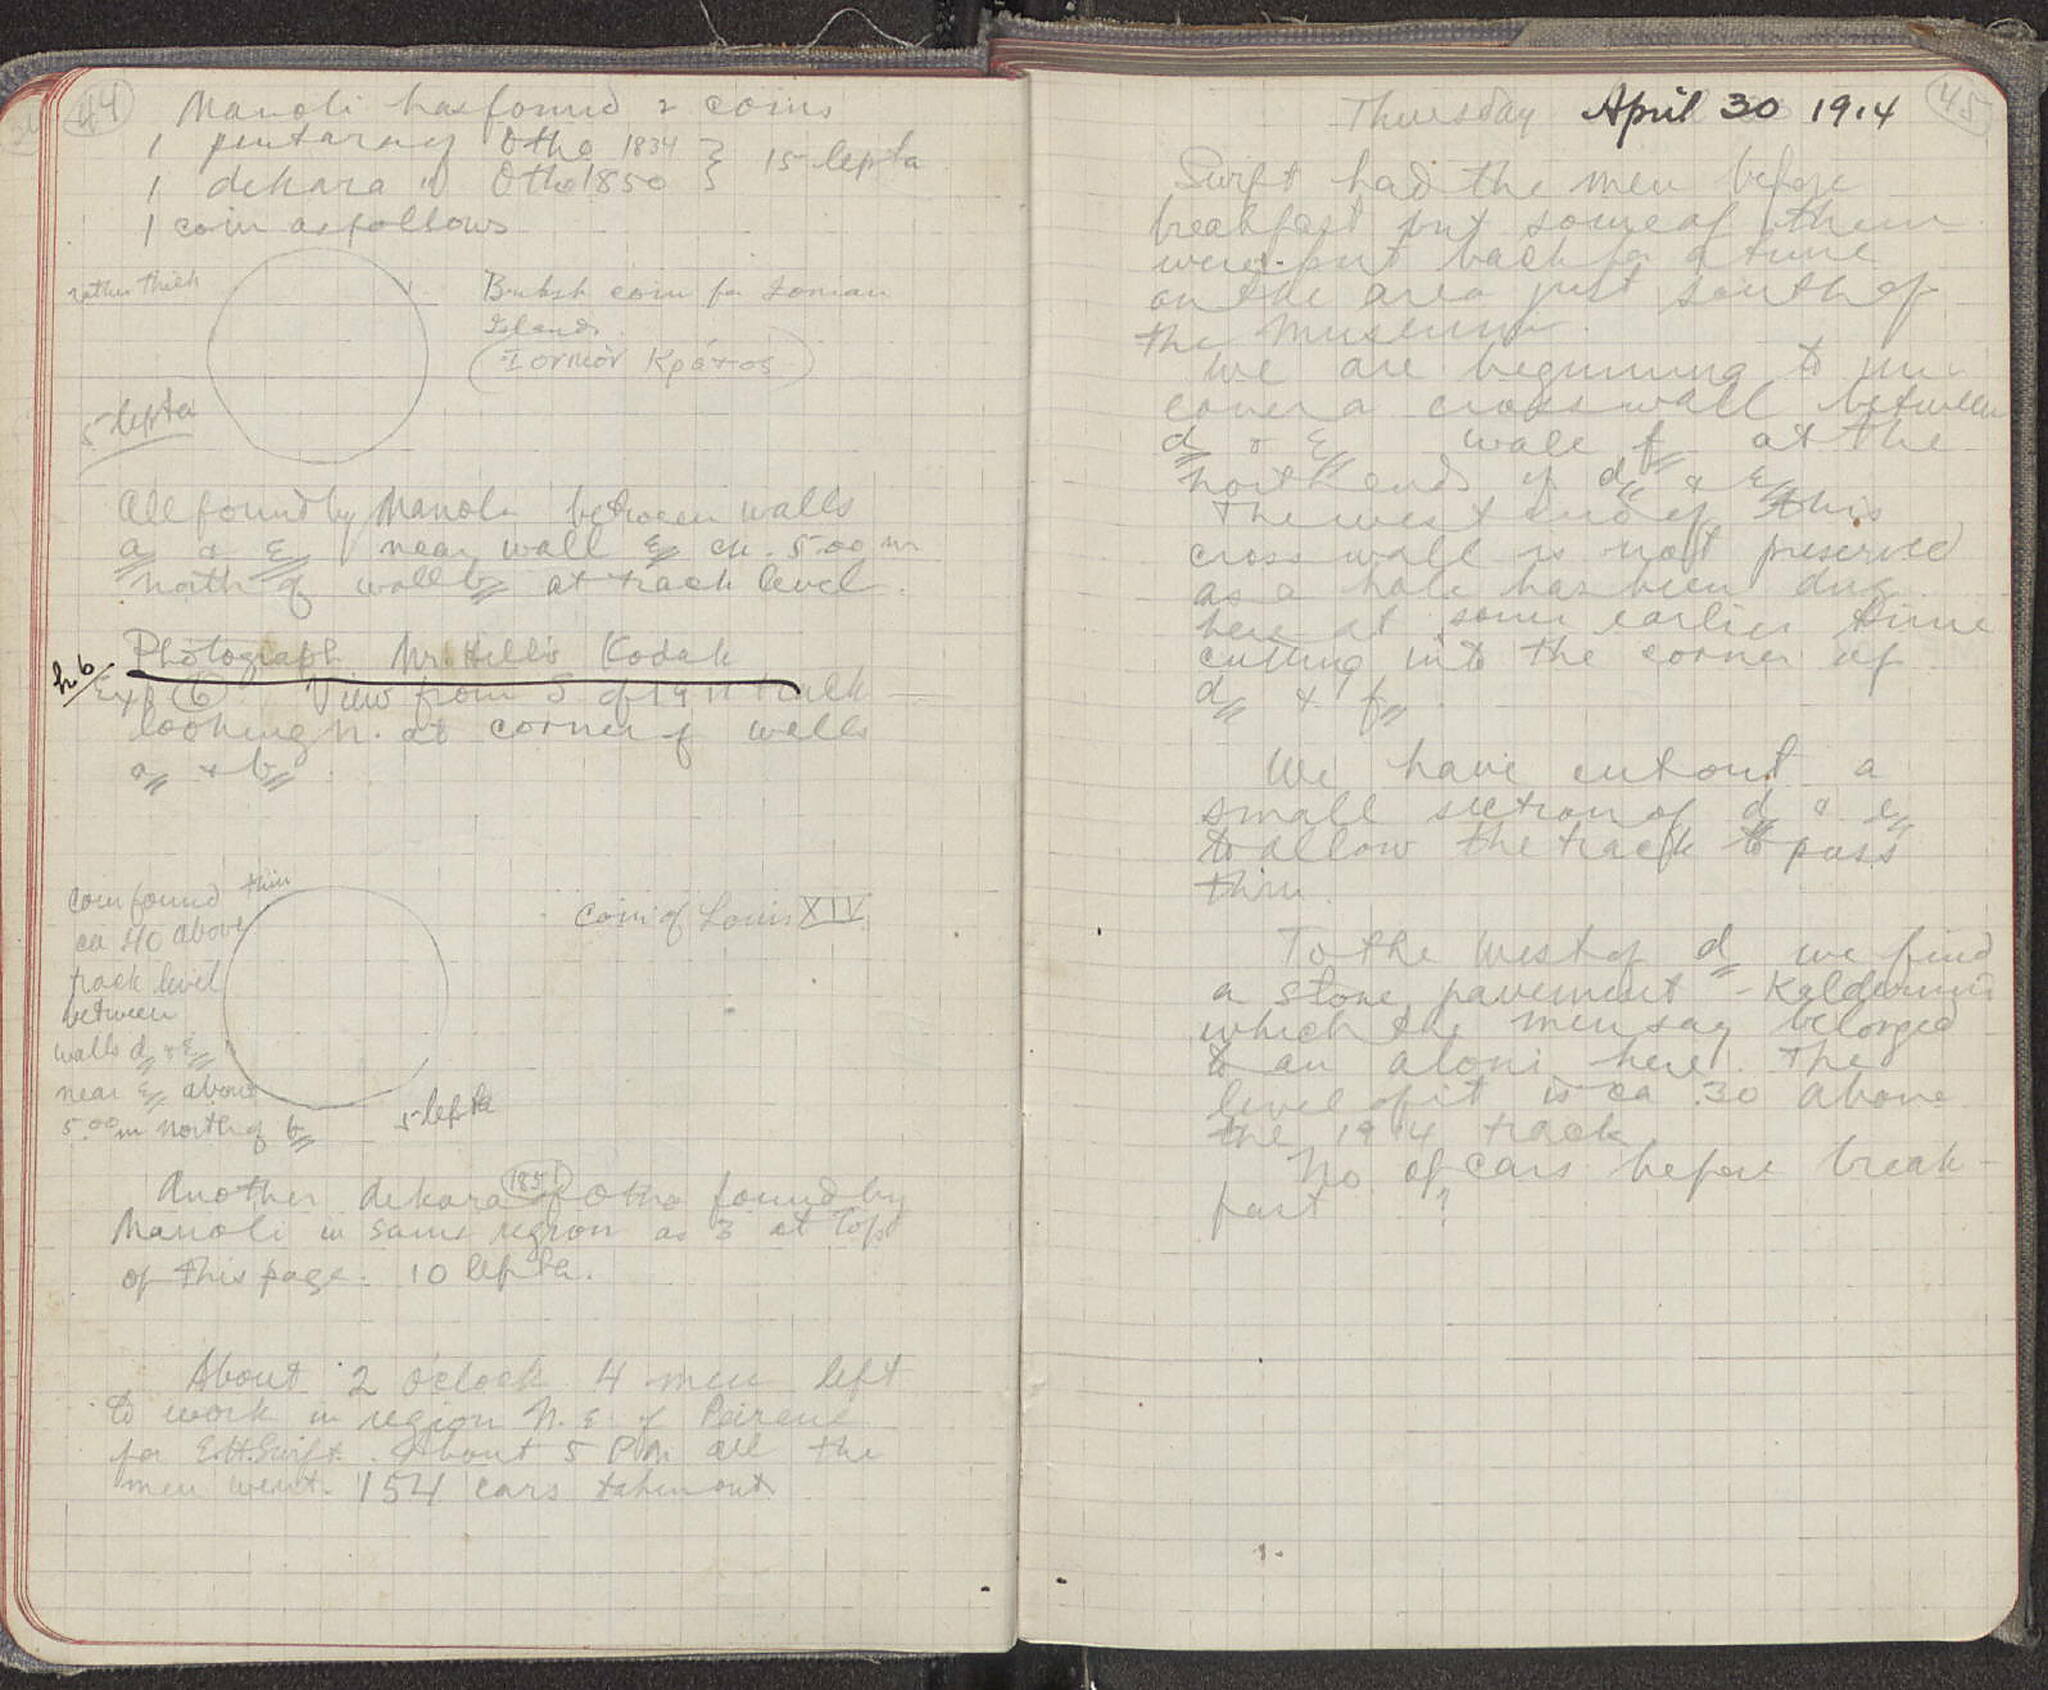 44
Manoli has found 2 coins
1 pentara of Otho 1834 } 15 lepta
1 dekara " Otho 1850
1 coin as follows
rather thick
British coin for Ionian
Islands.
(Ιονικὸν Κράτος)
5 lepta
All found by Manoli between walls
a & ε near wall ε ca. 5.00 m
north of wall b at track level.
Photograph Mr. Hill's Kodak
h6/ Exp. 6 View from S of 1911 track
looking N. at corner of walls
a & b.
Coin found thin
ca .40 above
track level
between
walls d & ε
near ε about
5.00 m north of b
Coin of Louis XIV.
5 lepta
Another dekara 1851 of Otho found by
Manoli in same region as 3 at top
of this page. 10 lepta.
About 2 o'clock 4 men left
to work in region N. E. of Peirene
for E.H. Swift. About 5 P.M. all the
men went. 154 cars taken out.
45
Thursday April 30 1914
Swift had the men before
breakfast but some of them
were put back for a time
on the area just south of
the Museum.
We are beginning to un-
cover a cross wall between
d & ε wall f at the
north ends of d & ε
The west end of this
cross wall is not preserved
as a hole has been dug
here at some earlier time
cutting into the corner of
d & f.
We have cut out a
small section of d & e
to allow the track to pass
thru.
To the West of d we find
a stone pavement -
which the men say belonged
to an aloni here. The
level of it is ca .30 above
the 1914 track
No of cars before break-
fast ?